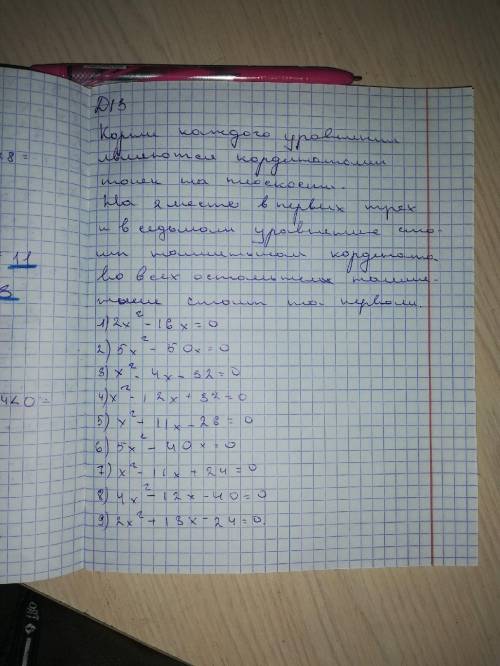 Д/З
Корни каждого уровнения
являются кординатами
точек на плоскости.
На 2 месте в первых трех
и в седьмом уровнение сто-
ит кордината
во всех остальных
стоит на первом.
1) 2x² - 16x = 0
2) 5x² - 50x = 0
3) x² - 4x - 32 = 0
4) x² - 12x + 32 = 0
5) x² + 11x - 26 = 0
6) 5x² - 40x = 0
7) x² - 11x + 24 = 0
8) 4x² - 12x - 40 = 0
9) 2x² + 13x - 24 = 0.
8 =
11
3
4<0 =